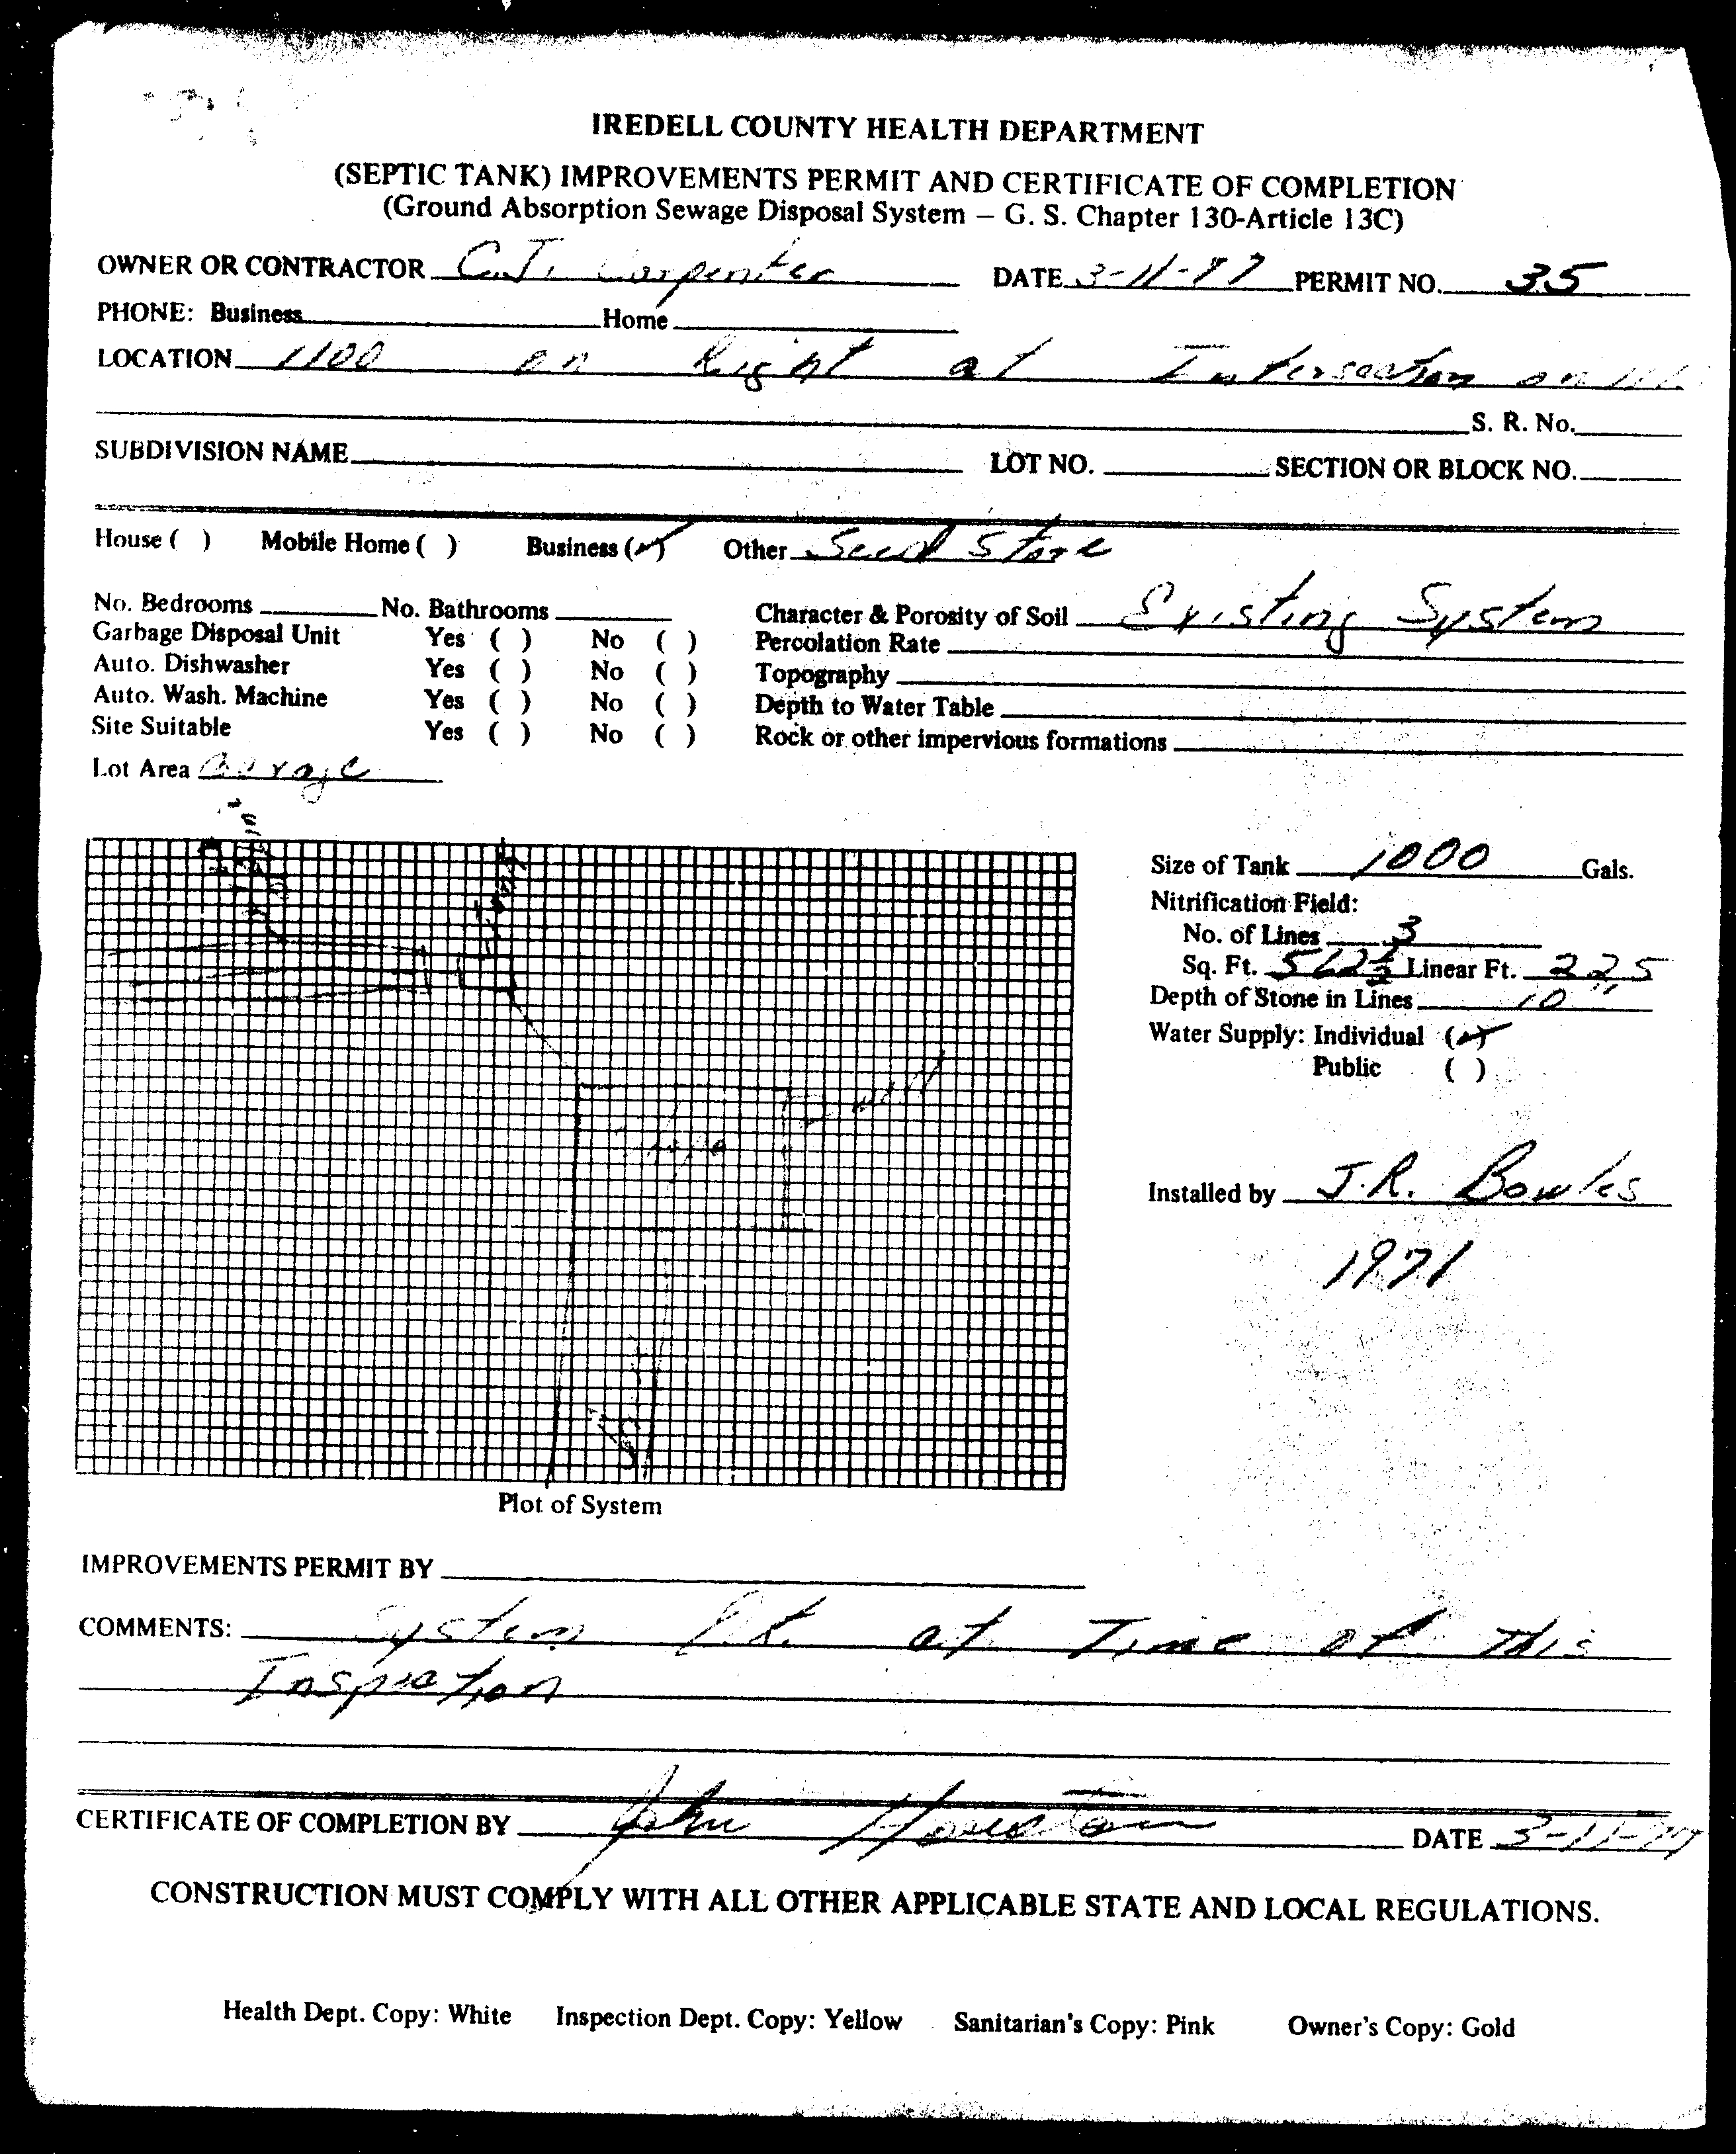 IREDELL COUNTY HEALTH DEPARTMENT
(SEPTIC TANK) IMPROVEMENTS PERMIT AND CERTIFICATE OF COMPLETION
(Ground Absorption Sewage Disposal System – G. S. Chapter 130-Article 13C)
OWNER OR CONTRACTOR C.J. Carpenter DATE 3-11-77 PERMIT NO. 35
PHONE: Business Home
LOCATION 1100 on Right at Intersection on
S. R. No.
SUBDIVISION NAME LOT NO. SECTION OR BLOCK NO.
House ( ) Mobile Home ( ) Business (✓) Other Seed Store
No. Bedrooms No. Bathrooms Character & Porosity of Soil Existing System
Garbage Disposal Unit Yes ( ) No ( ) Percolation Rate
Auto. Dishwasher Yes ( ) No ( ) Topography
Auto. Wash. Machine Yes ( ) No ( ) Depth to Water Table
Site Suitable Yes ( ) No ( ) Rock or other impervious formations
Lot Area
Size of Tank 1000 Gals.
Nitrification Field:
No. of Lines 3
Sq. Ft. 562½ Linear Ft. 225
Depth of Stone in Lines 10"
Water Supply: Individual (✓)
Public ( )
well
Installed by J.R. Bowles
1971
Plot of System
IMPROVEMENTS PERMIT BY
COMMENTS: System O.K. at Time of This
Inspection
CERTIFICATE OF COMPLETION BY John Houston DATE 3-11-77
CONSTRUCTION MUST COMPLY WITH ALL OTHER APPLICABLE STATE AND LOCAL REGULATIONS.
Health Dept. Copy: White Inspection Dept. Copy: Yellow Sanitarian's Copy: Pink Owner's Copy: Gold